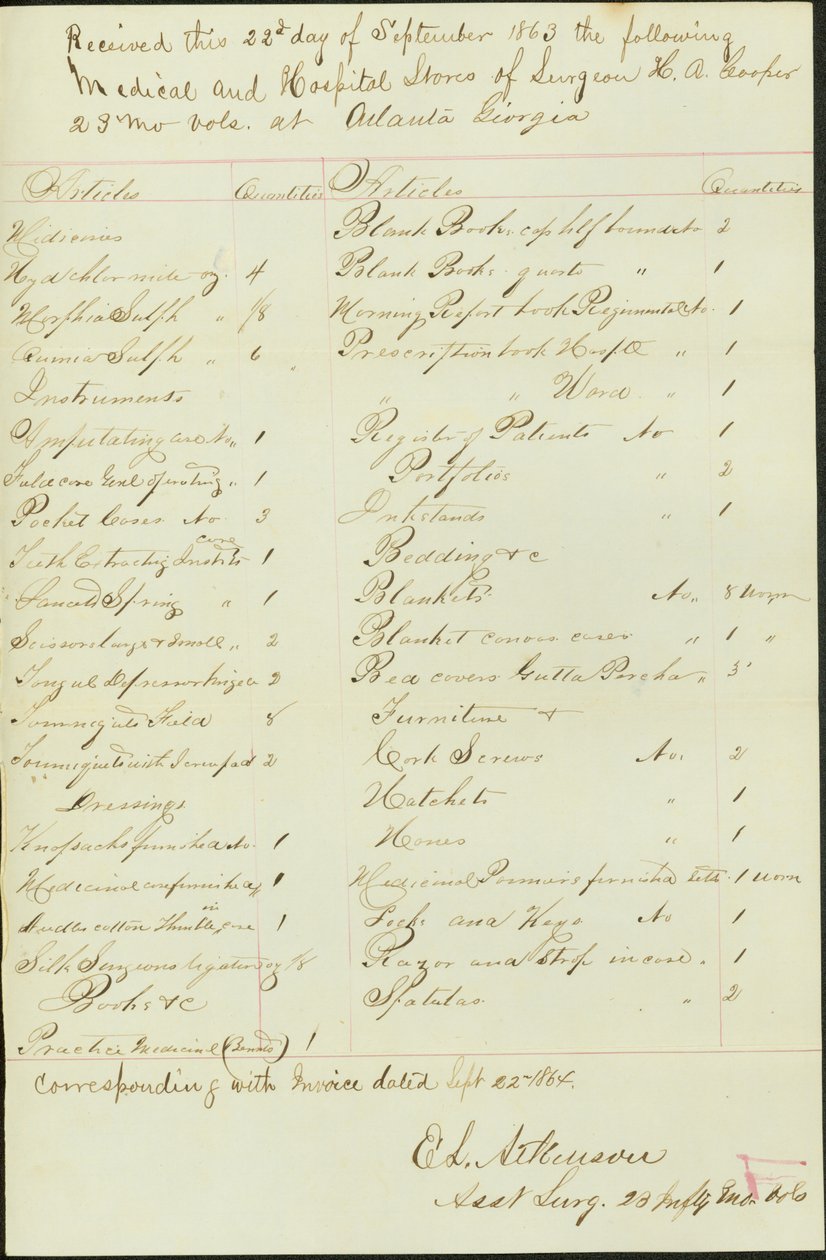 Received this 22d day of September 1863 the following
Medical and Hospital Stores of Surgeon H. A. Cooper
23 Mo Vols. at Atlanta Georgia
Articles Quantities
Medicines
Hyd chlor mite oz. 4
Morphia Sulph " 1/8
Quinia Sulph " 6
Instruments
Amputating case No. " 1
Field case Genl operating " 1
Pocket Cases No. 3
case
Teeth Extracting Instrts 1
Lancets Spring " 1
Scissors large & small " 2
Tongue Depressor hinged 2
Tourniquets Field 8
Tourniquets with Screw pad 2
Dressings
Knapsacks furnished No. 1
Medicinal case furnished " 1
in
Needles cotton Thimble, case 1
Silk Surgeons ligature oz 1/8
Books & c
Practice Medicine (Bennets) 1
Articles Quantities
Blank Books cap hlf bound No 2
Blank Books quarto " 1
Morning Report book Regimental No. 1
Prescription book Hosptl " 1
" " Ward " 1
Register of Patients No 1
Portfolios " 2
Inkstands " 1
Bedding & c
Blankets No. " 8 worn
Blanket canvas cases " 1 "
Bed covers Gutta Percha " 3
Furniture &
Cork Screws No. 2
Hatchets " 1
Hones " 1
Medicinal Panniers furnished sets. 1 worn
Locks and Keys No 1
Razor and Strop in case " 1
Spatulas " 2
Corresponding with Invoice dated Sept 22 - 1864.
E L. Atkinson
Asst Surg. 23 Infty Mo. Vols